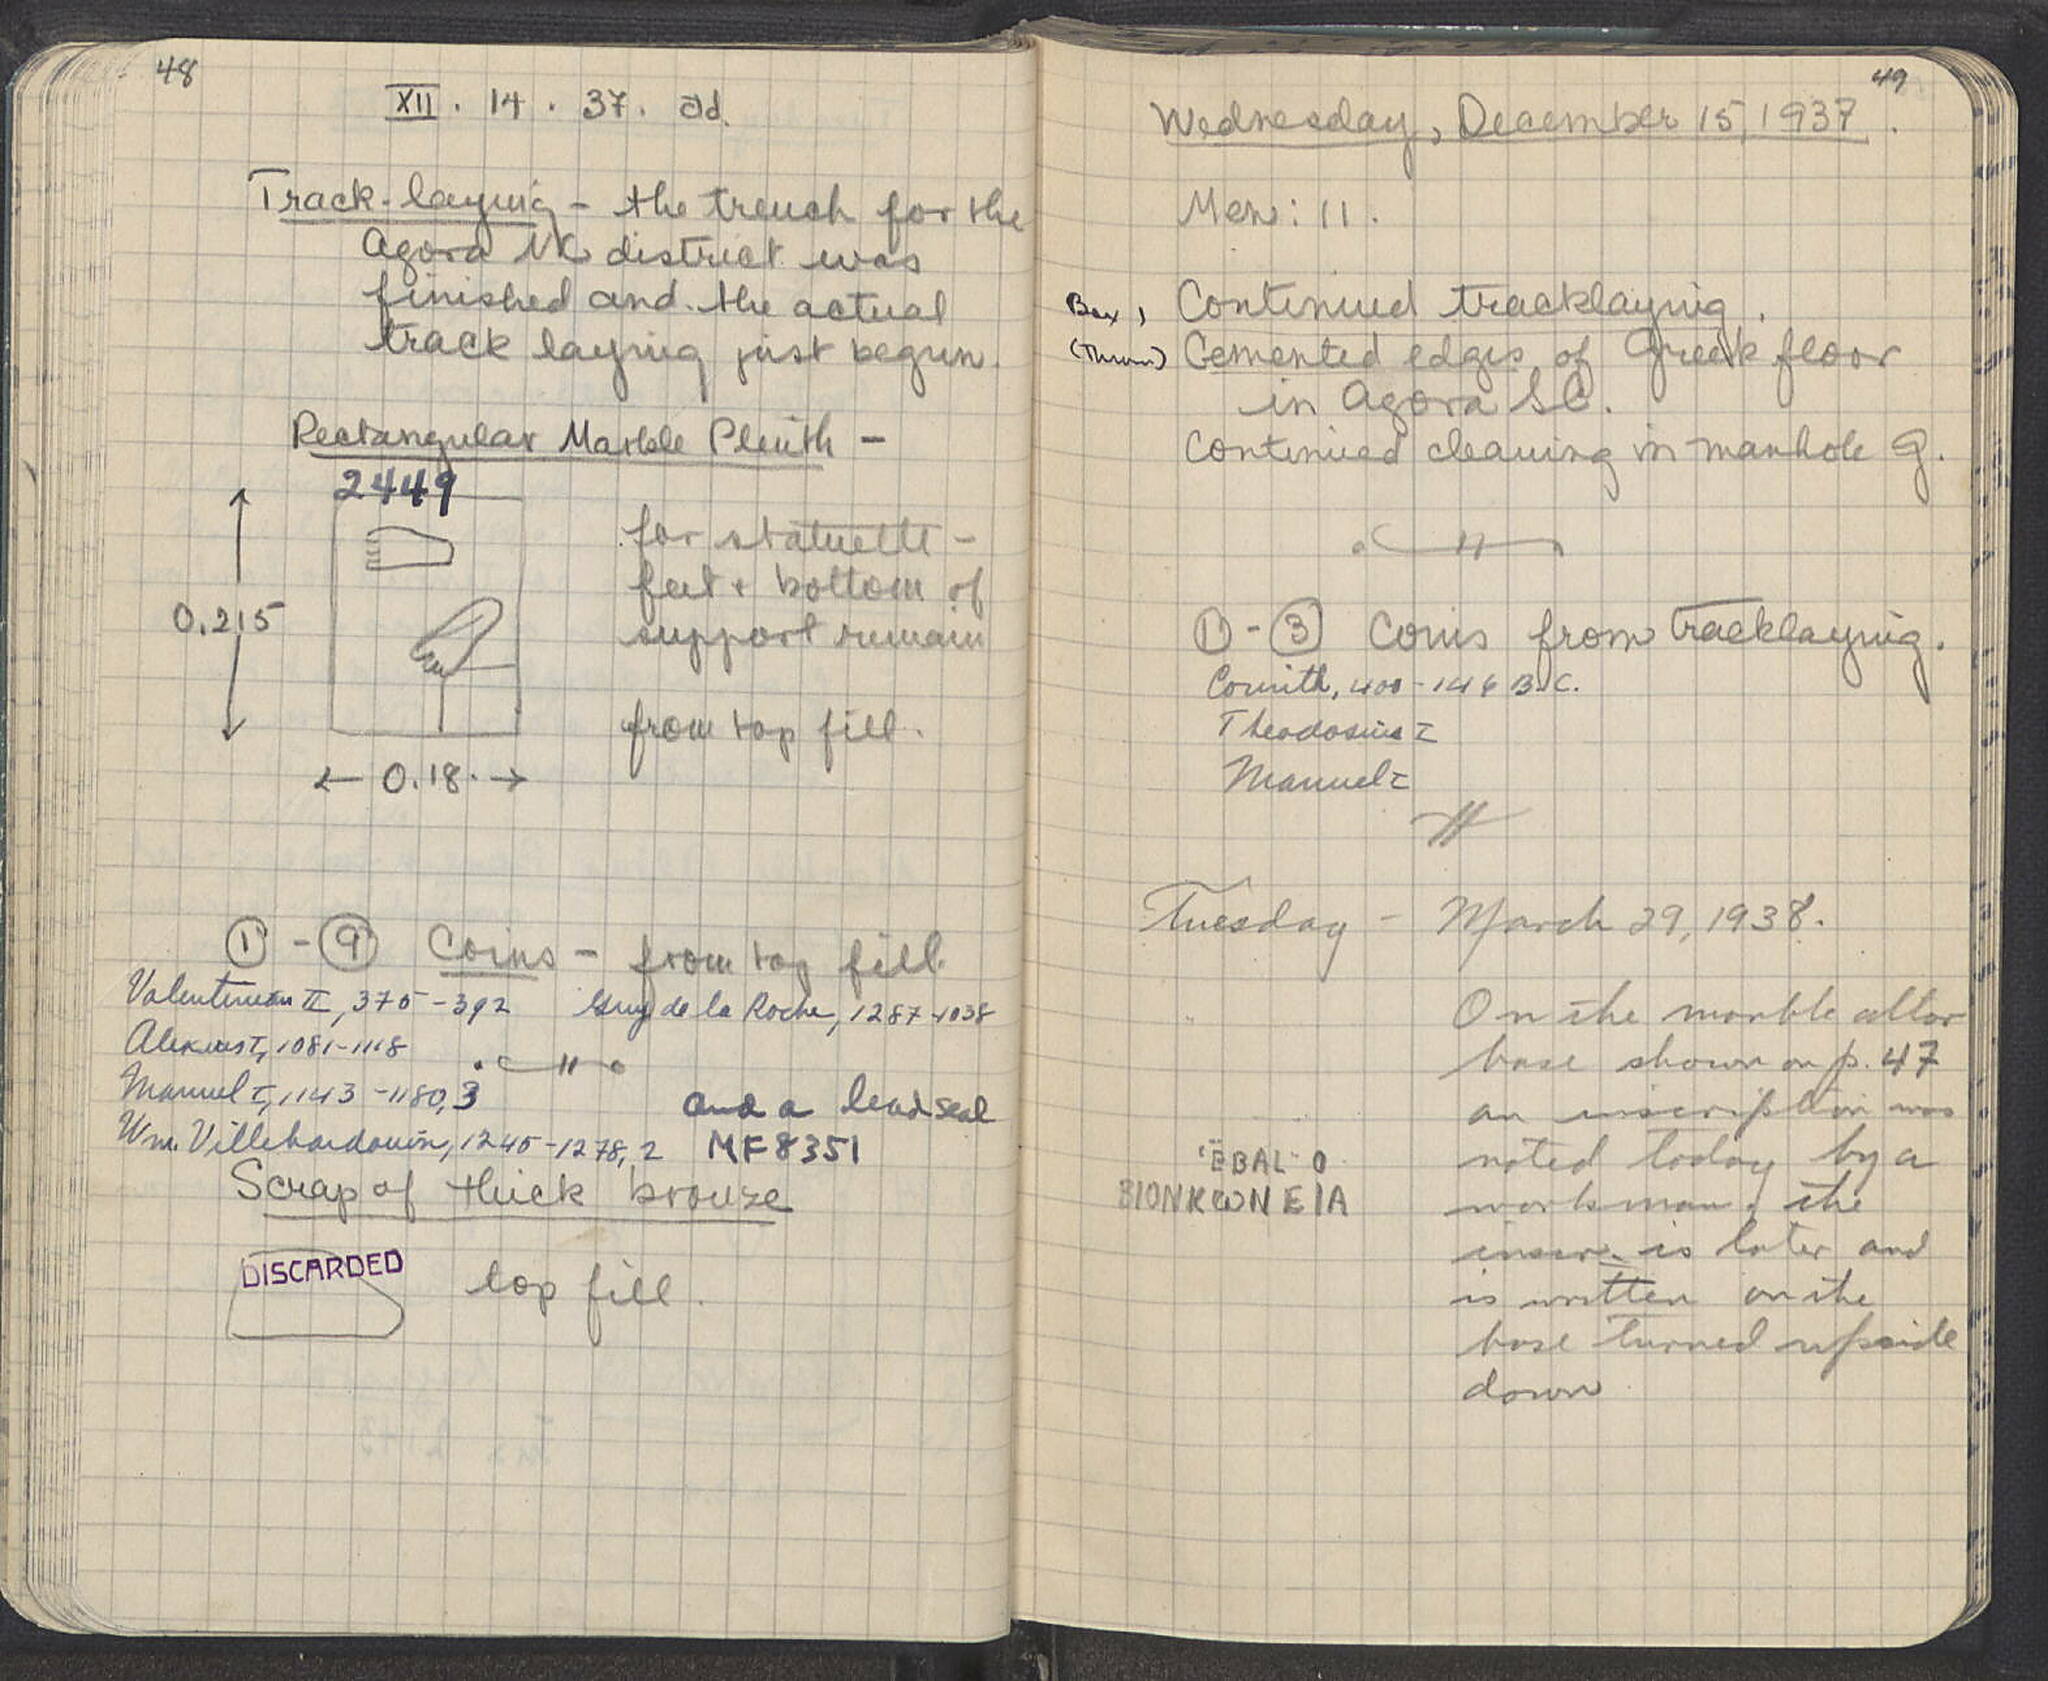 48
XII . 14 . 37. ad.
Track-laying - the trench for the
Agora NE district was
finished and the actual
track laying just begun.
Rectangular Marble Plinth -
2449
for statuette -
feet + bottom of
support remain
0.215
from top fill.
← 0.18. →
1 - 9 Coins - from top fill.
Valentinian II, 375-392 Guy de la Roche, 1287-1038
Alexius I, 1081-1118
Manuel I, 1143-1180, 3
and a lead seal
Wm. Villehardouin, 1245-1278, 2 MF 8351
Scrap of thick bronze
DISCARDED
top fill.
49
Wednesday, December 15, 1937.
Men: 11.
Box 1 Continued tracklaying.
(Thrown) Cemented edges of Greek floor
in Agora SC.
Continued cleaning in manhole G.
1 - 3 Coins from tracklaying.
Corinth, 400-146 B.C.
Theodosius I
Manuel I
Tuesday - March 29, 1938.
On the marble altar
base shown on p. 47
an inscription was
noted today by a
workman; the
inscr. is later and
is written on the
base turned upside
down
EBAL O
BIONKWNEIA